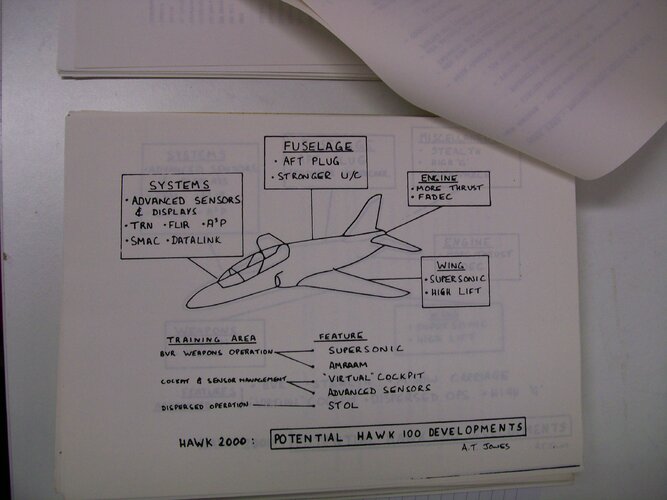 FUSELAGE
• AFT PLUG
• STRONGER U/C
SYSTEMS
• ADVANCED SENSORS
& DISPLAYS
• TRN • FLIR • A³P
• SMAC • DATALINK
ENGINE
• MORE THRUST
• FADEC
WING
• SUPERSONIC
• HIGH LIFT
TRAINING AREA FEATURE
BVR WEAPONS OPERATION SUPERSONIC
AMRAAM
COCKPIT & SENSOR MANAGEMENT "VIRTUAL" COCKPIT
ADVANCED SENSORS
DISPERSED OPERATION STOL
HAWK 2000: POTENTIAL HAWK 100 DEVELOPMENTS
A.T. JONES